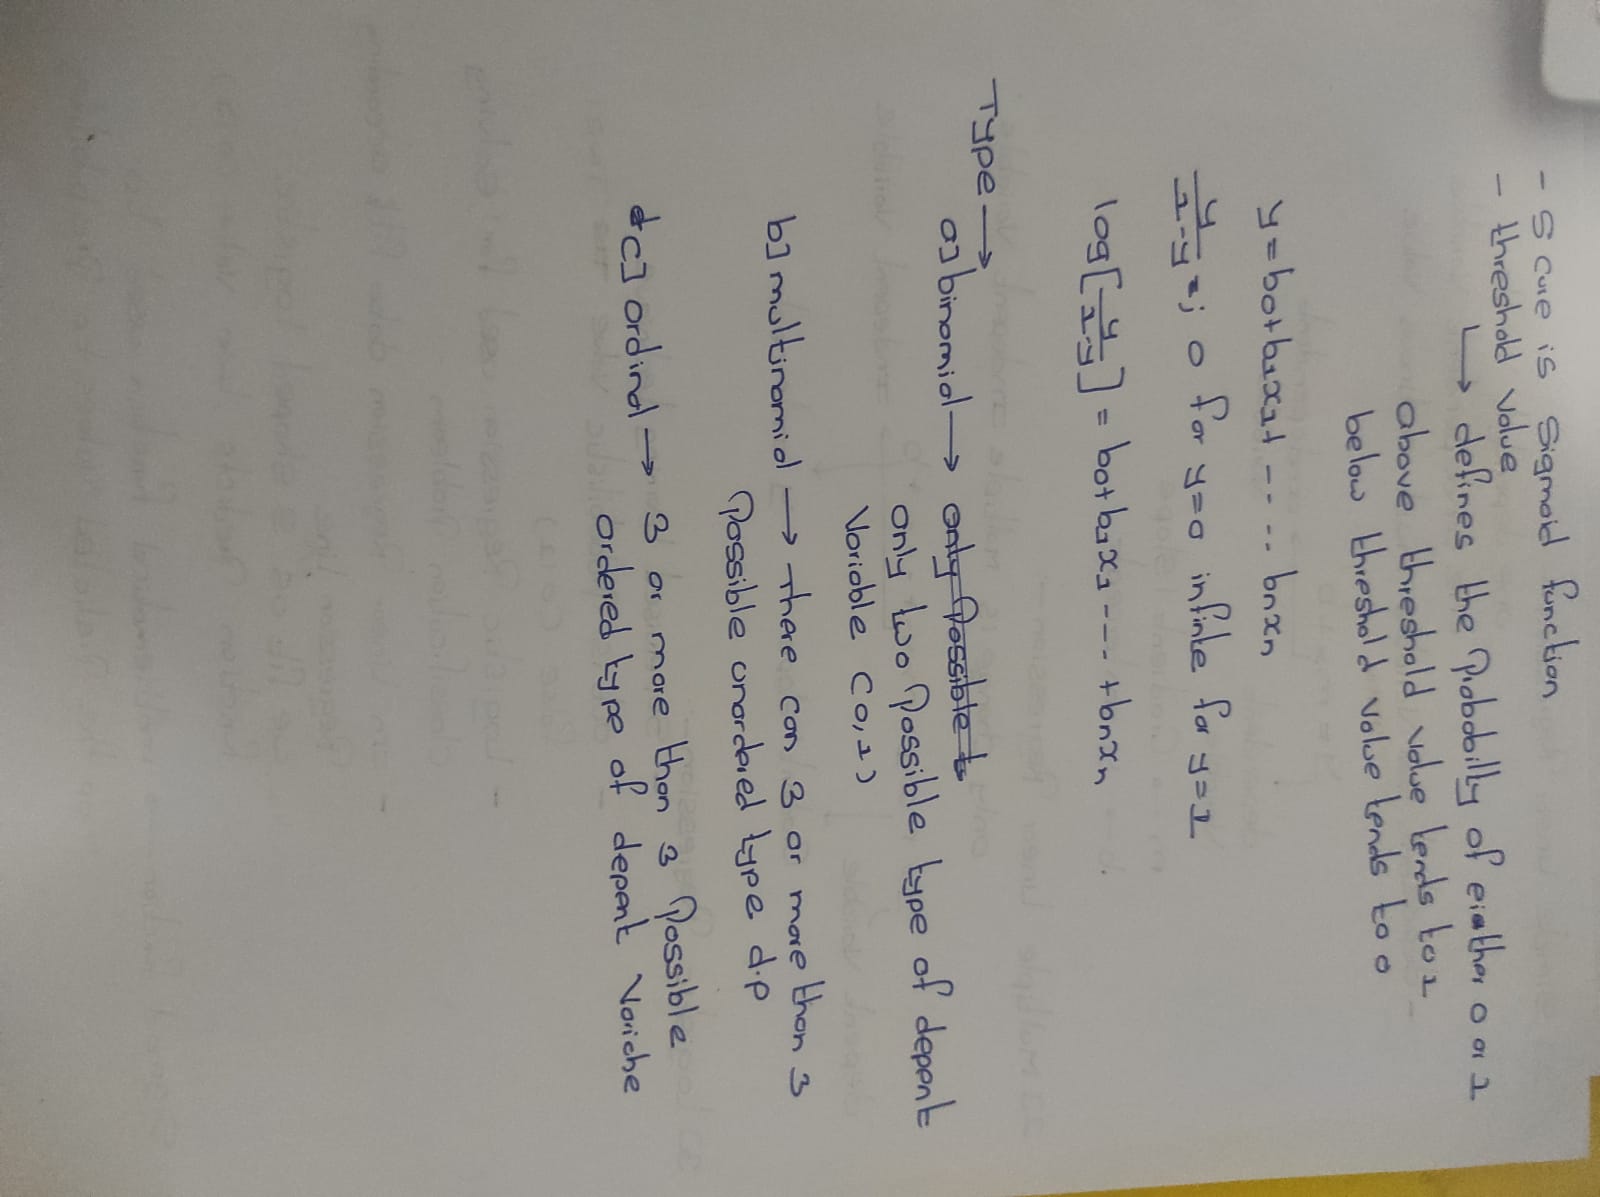 - S cure is Sigmoid function
- threshold value
↳ defines the Probabilly of eiather 0 or 1
above threshold value tends to 1
below threshold value tends to 0
y = b0 + b1x1 + ---- bnxn
y/1-y = ; 0 for y=0 infinte for y=1
log[y/1-y] = b0 + b1x1 --- + bnxn
Type →
a] binomial → only Possible t
only two Possible type of depent
Variable (0,1)
b] multinomial → There can 3 or more than 3
Possible unordered type d.p
c] ordinal → 3 or more than 3 Possible
ordered type of depent